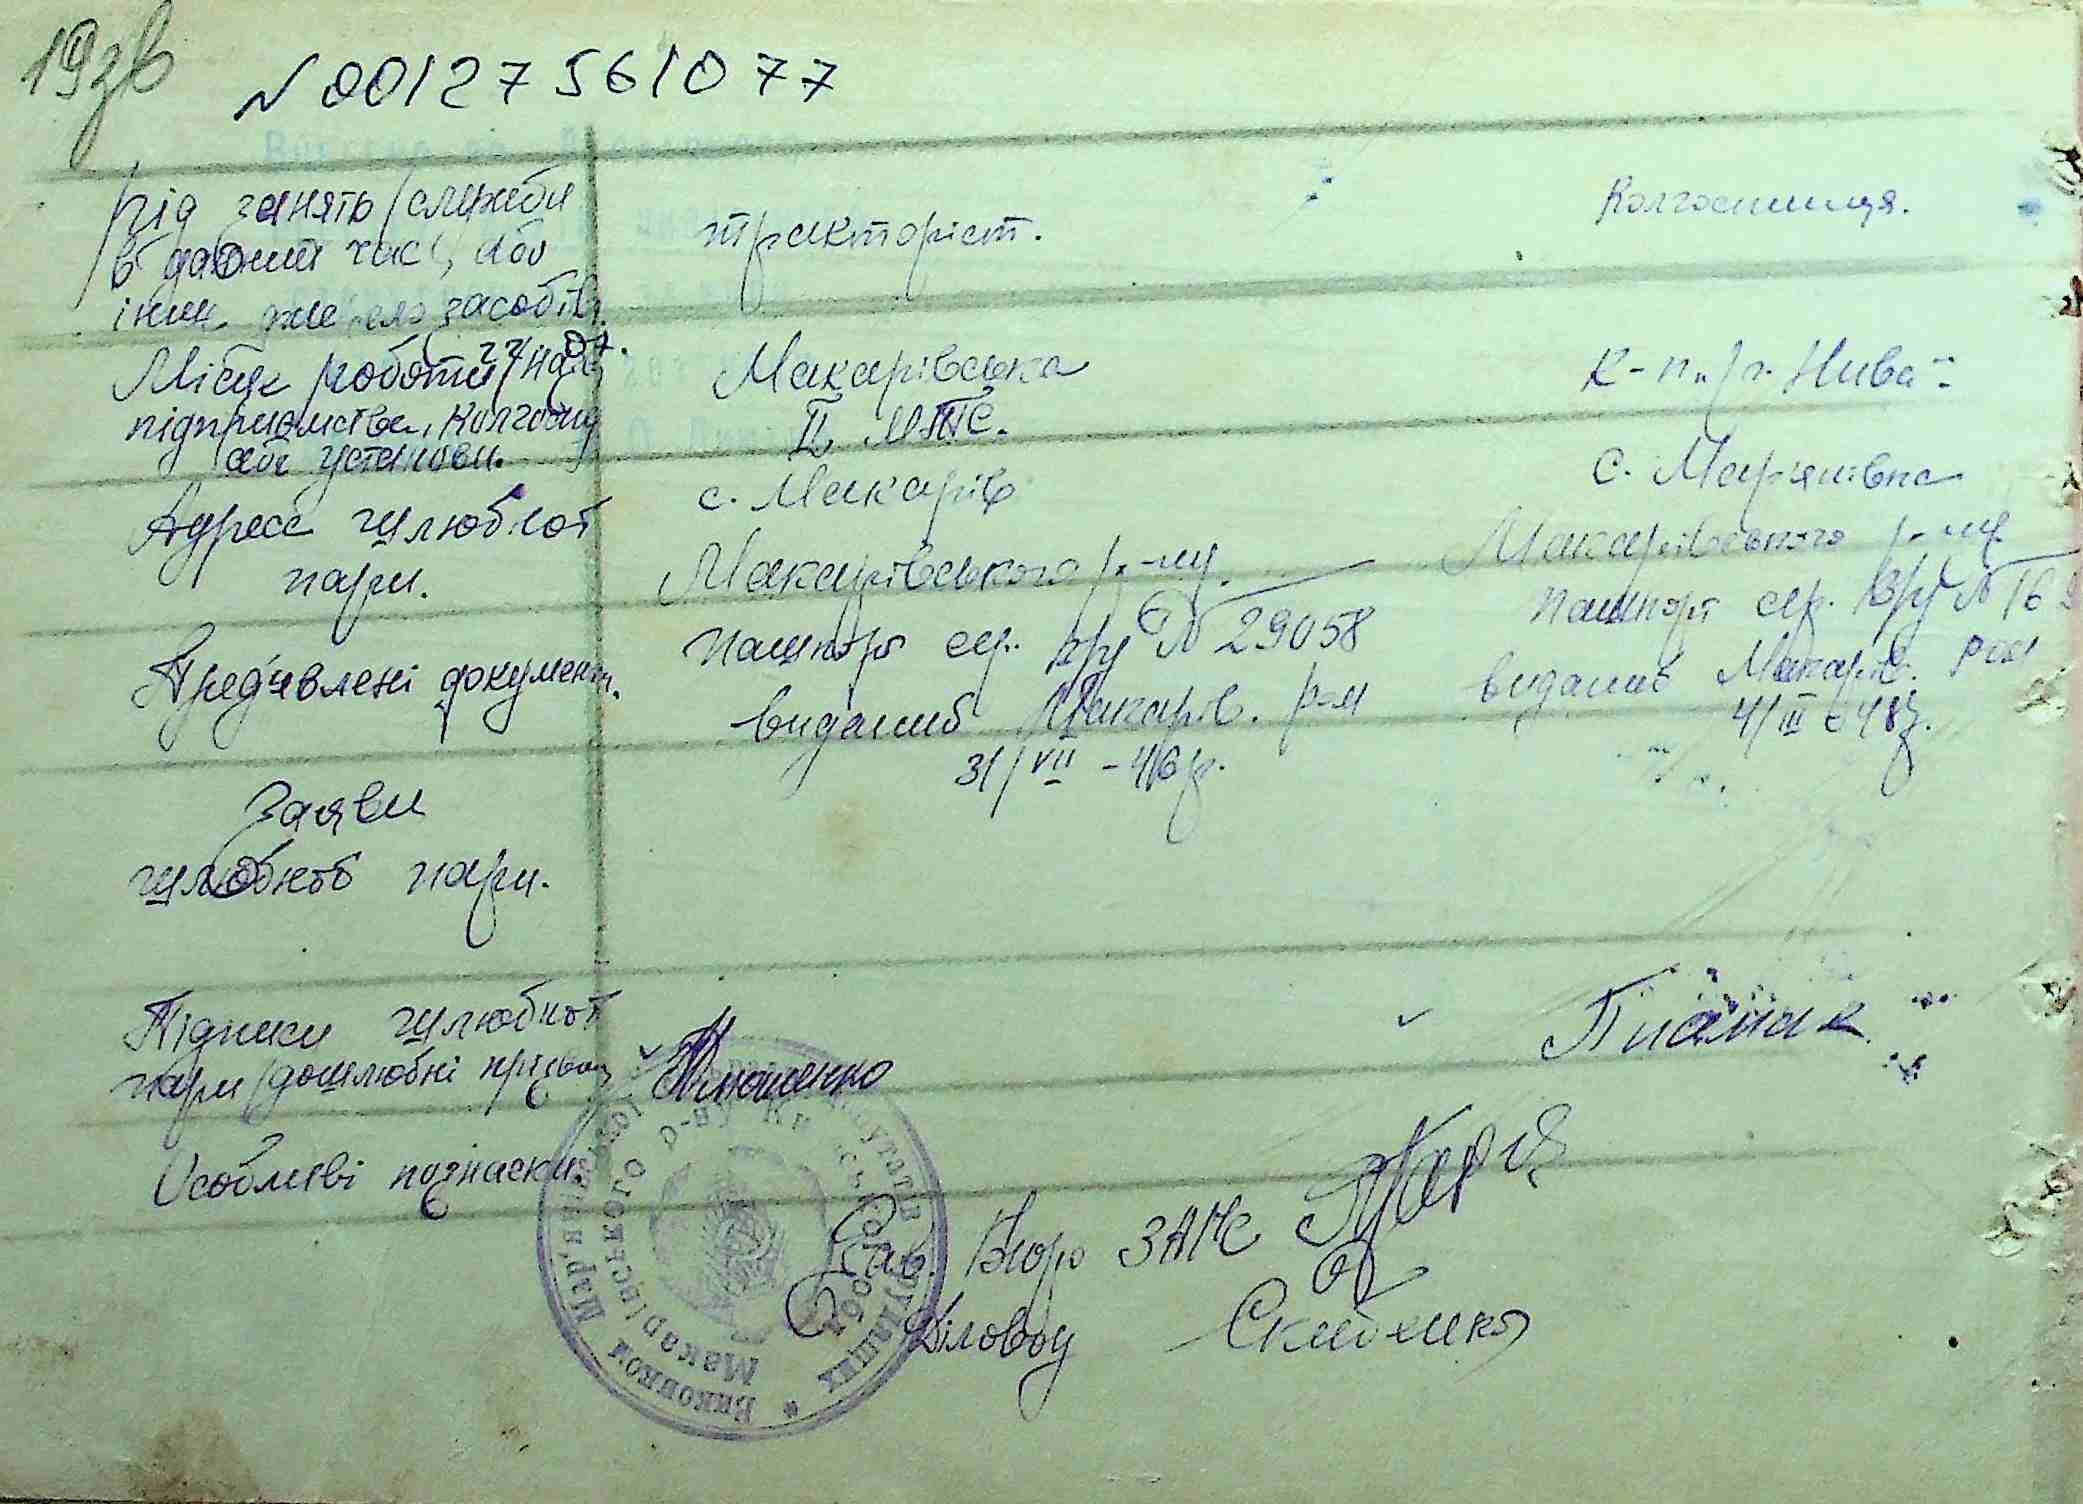 19зв
N 00127561077
рід занять /служби
в даний час/, або
інше джерело засобів.
тракторіст.
Колгоспниця.
Місце роботи /назв.
підприємства, колгоспу
або установи.
Макарівська
II МТС.
к-п „ Нива"
Адреса шлюбної
пари.
с. Макарів
Макарівського р-ну.
с. Мар'янівка
Макарівського р-ну
Пред'явлені документ.
пашпорт сер. № 29058
виданий Макарів. р-м
31/VII - 46р.
пашпорт сер. № 16
виданий Макарів. ром
4/III - 48р.
Заяви
шлюбної пари.
Підписи шлюбної
пари /дошлюбні прізвищ
Особливі познаски.
Зав. Бюро ЗАГС
Діловод
Виконком Мар
Макарівської
р-ну Київської обл.
депутатів трудящих